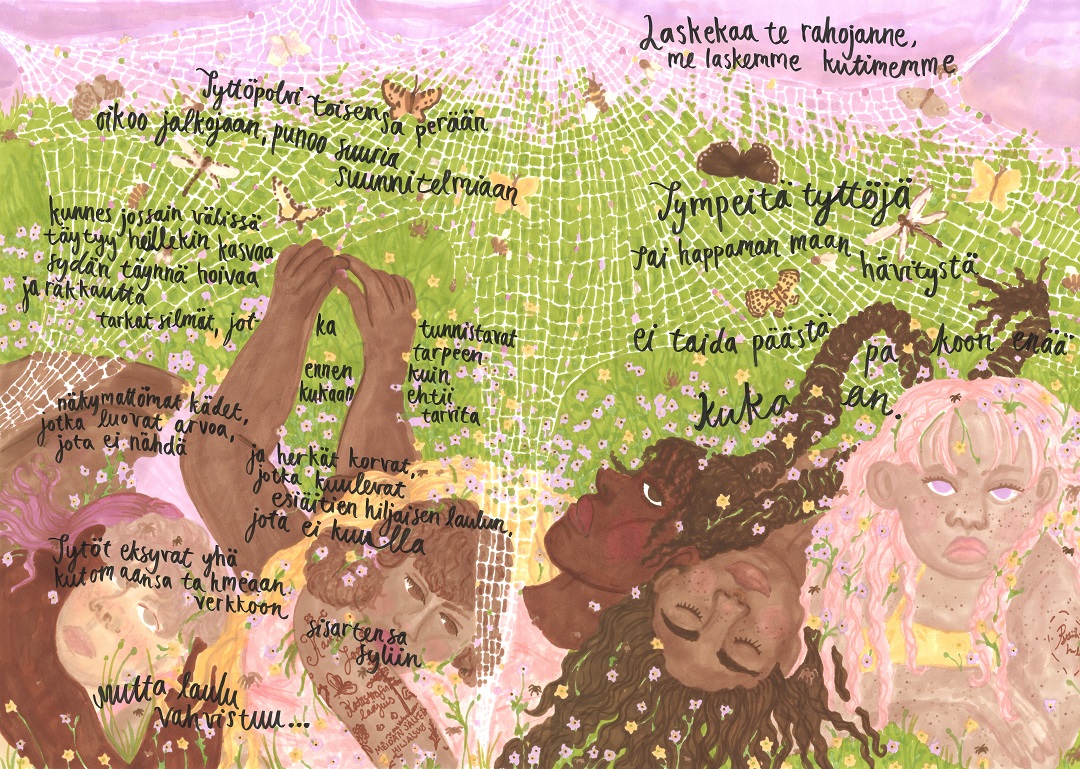 Tyttöpolvi toisensa perään
oikoo jalkojaan, punoo suuria
suunnitelmiaan
kunnes jossain välissä
täytyy heillekin kasvaa
sydän täynnä hoivaa
ja rakkautta
tarkat silmät, jot- ka tunnistavat
tarpeen
ennen kuin
kukaan ehtii
tarvita
näkymättömät kädet,
jotka luovat arvoa,
jota ei nähdä
ja herkät korvat,
jotka kuulevat
esiäitien hiljaisen laulun,
jota ei kuulla
Tytöt eksyvät yhä
kutomaansa tahmeaan
verkkoon
sisartensa
syliin
mutta laulu
vahvistuu...
Laskekaa te rahojanne,
me laskemme kutimemme
Tympeitä tyttöjä
tai happaman maan hävitystä
ei taida päästä pa koon enää
kuka an.